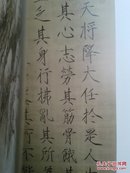 天將降大任於是人
其心志勞其筋骨餓其
乏其身行拂亂其所